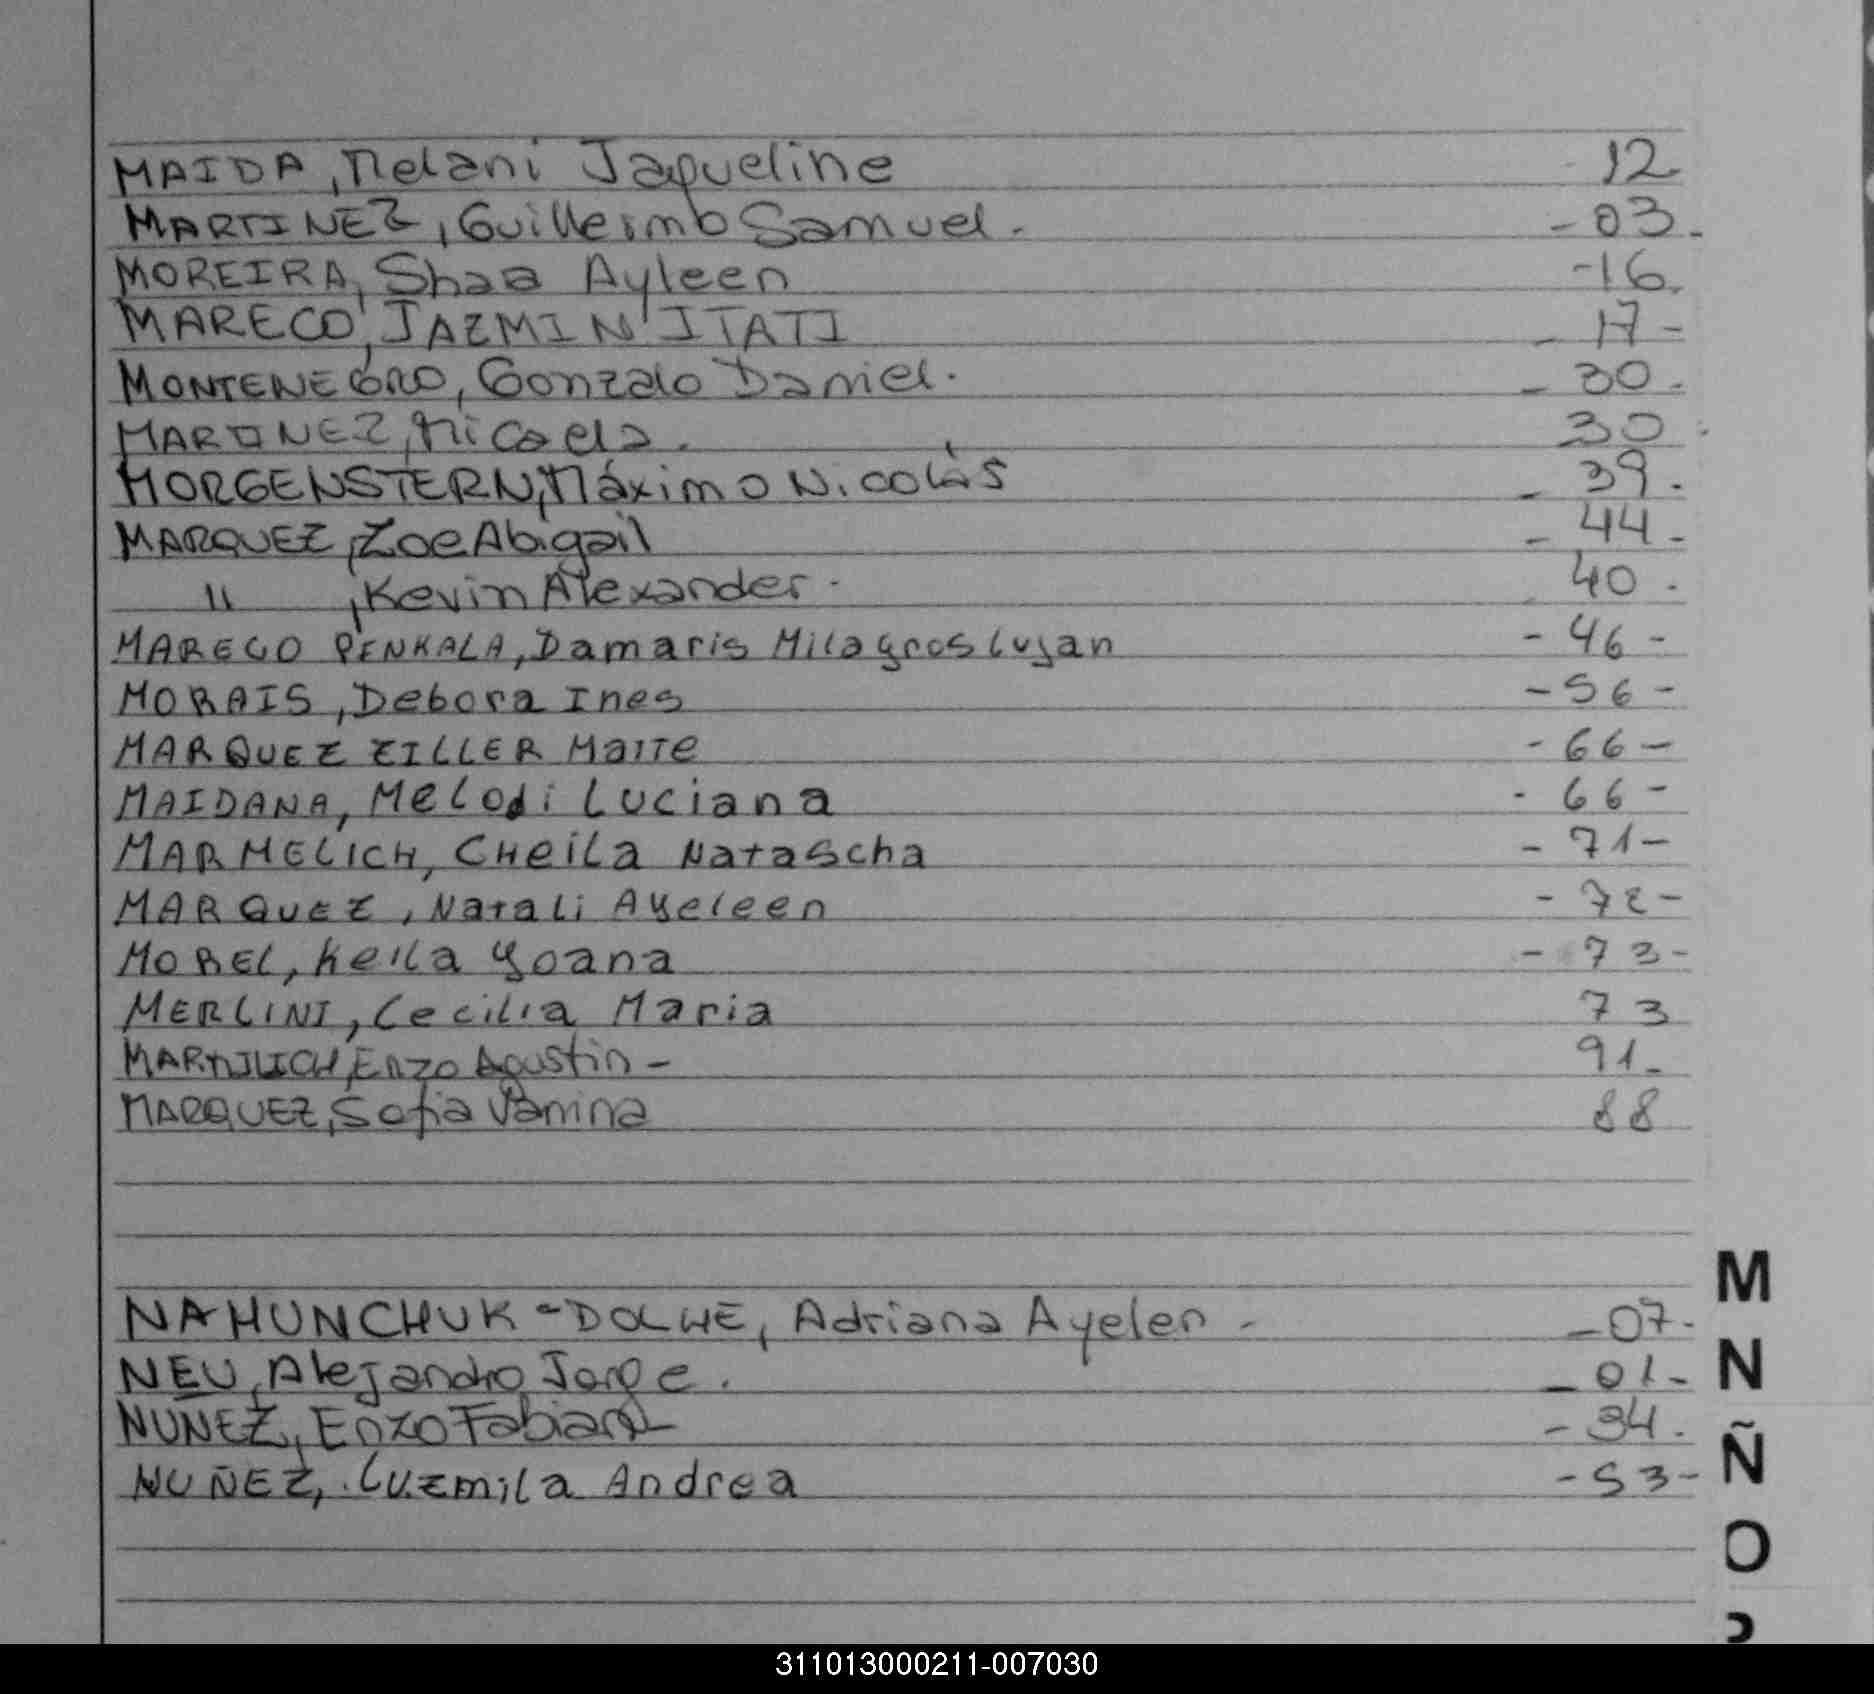 MAIDA, Melani Jaqueline 12
MARTINEZ, Guillermo Samuel. -03.
MOREIRA, Shaa Ayleen -16.
MARECO, JAZMIN ITATI - 17 -
MONTENEGRO, Gonzalo Daniel. - 30.
MARTINEZ, Micaela. 30
MORGENSTERN, Máximo Nicolás - 39.
MARQUEZ, Zoe Abigail - 44 -
" , Kevin Alexander. 40.
MARECO PENKALA, Damaris Milagros Lujan - 46 -
MORAIS, Debora Ines - 56 -
MARQUEZ ZILLER Maite - 66 -
MAIDANA, Melodi Luciana - 66 -
MARMELICH, CHeila Natascha - 71 -
MARQUEZ, Natali Ayeleen - 72 -
MOREL, Keila Yoana - 73 -
MERLINI, Cecilia Maria 73
Enzo Agustin - 91.
MARQUEZ, Sofia Vanina 88
NAHUNCHUK - Adriana Ayelen - - 07.
NEU, Alejandro Jorge. - 01 -
NUNEZ, Enzo Fabian - 34.
NUÑEZ, Luzmila Andrea - 53 -
M
N
Ñ
O
311013000211-007030